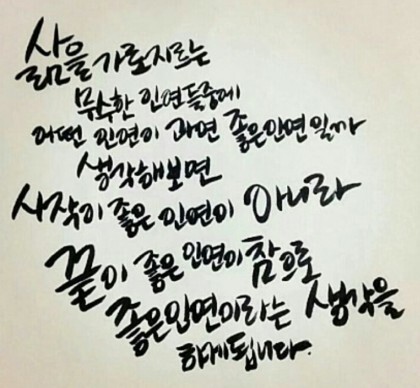 삶을 가로지르는
무수한 인연들중에
어떤 인연이 과연 좋은인연일까
생각해보면
시작이 좋은 인연이 아니라
끝이 좋은 인연이 참으로
좋은인연이라는 생각을
하게됩니다.